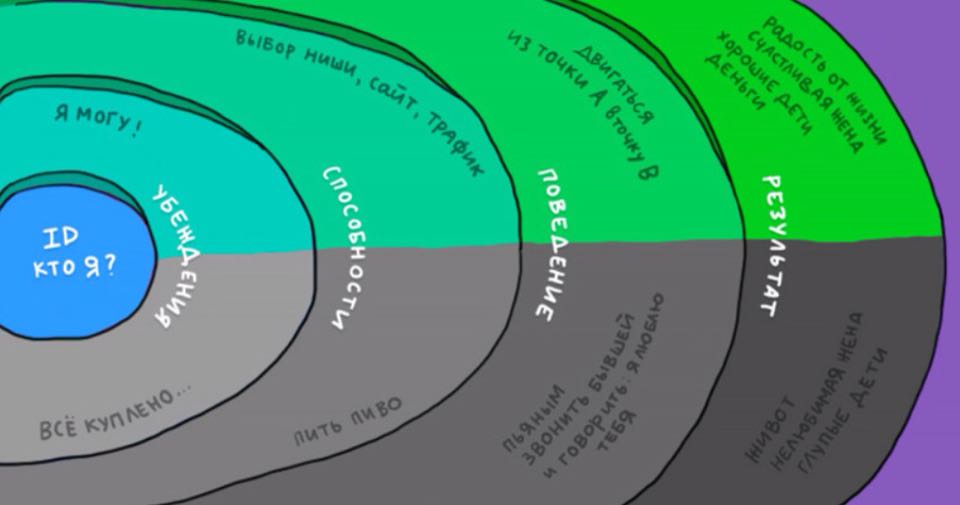 ID
КТО Я?
УБЕЖДЕНИЯ
Я МОГУ!
ВСЁ КУПЛЕНО...
СПОСОБНОСТИ
ВЫБОР НИШИ, САЙТ, ТРАФИК
ПИТЬ ПИВО
ПОВЕДЕНИЕ
ДВИГАТЬСЯ
ИЗ ТОЧКИ А В ТОЧКУ В
ПЬЯНЫМ
ЗВОНИТЬ БЫВШЕЙ
И ГОВОРИТЬ: Я ЛЮБЛЮ
ТЕБЯ
РЕЗУЛЬТАТ
РАДОСТЬ ОТ ЖИЗНИ
СЧАСТЛИВАЯ ЖЕНА
ХОРОШИЕ ДЕТИ
ДЕНЬГИ
ЖИВОТ
НЕЛЮБИМАЯ ЖЕНА
ГЛУПЫЕ ДЕТИ